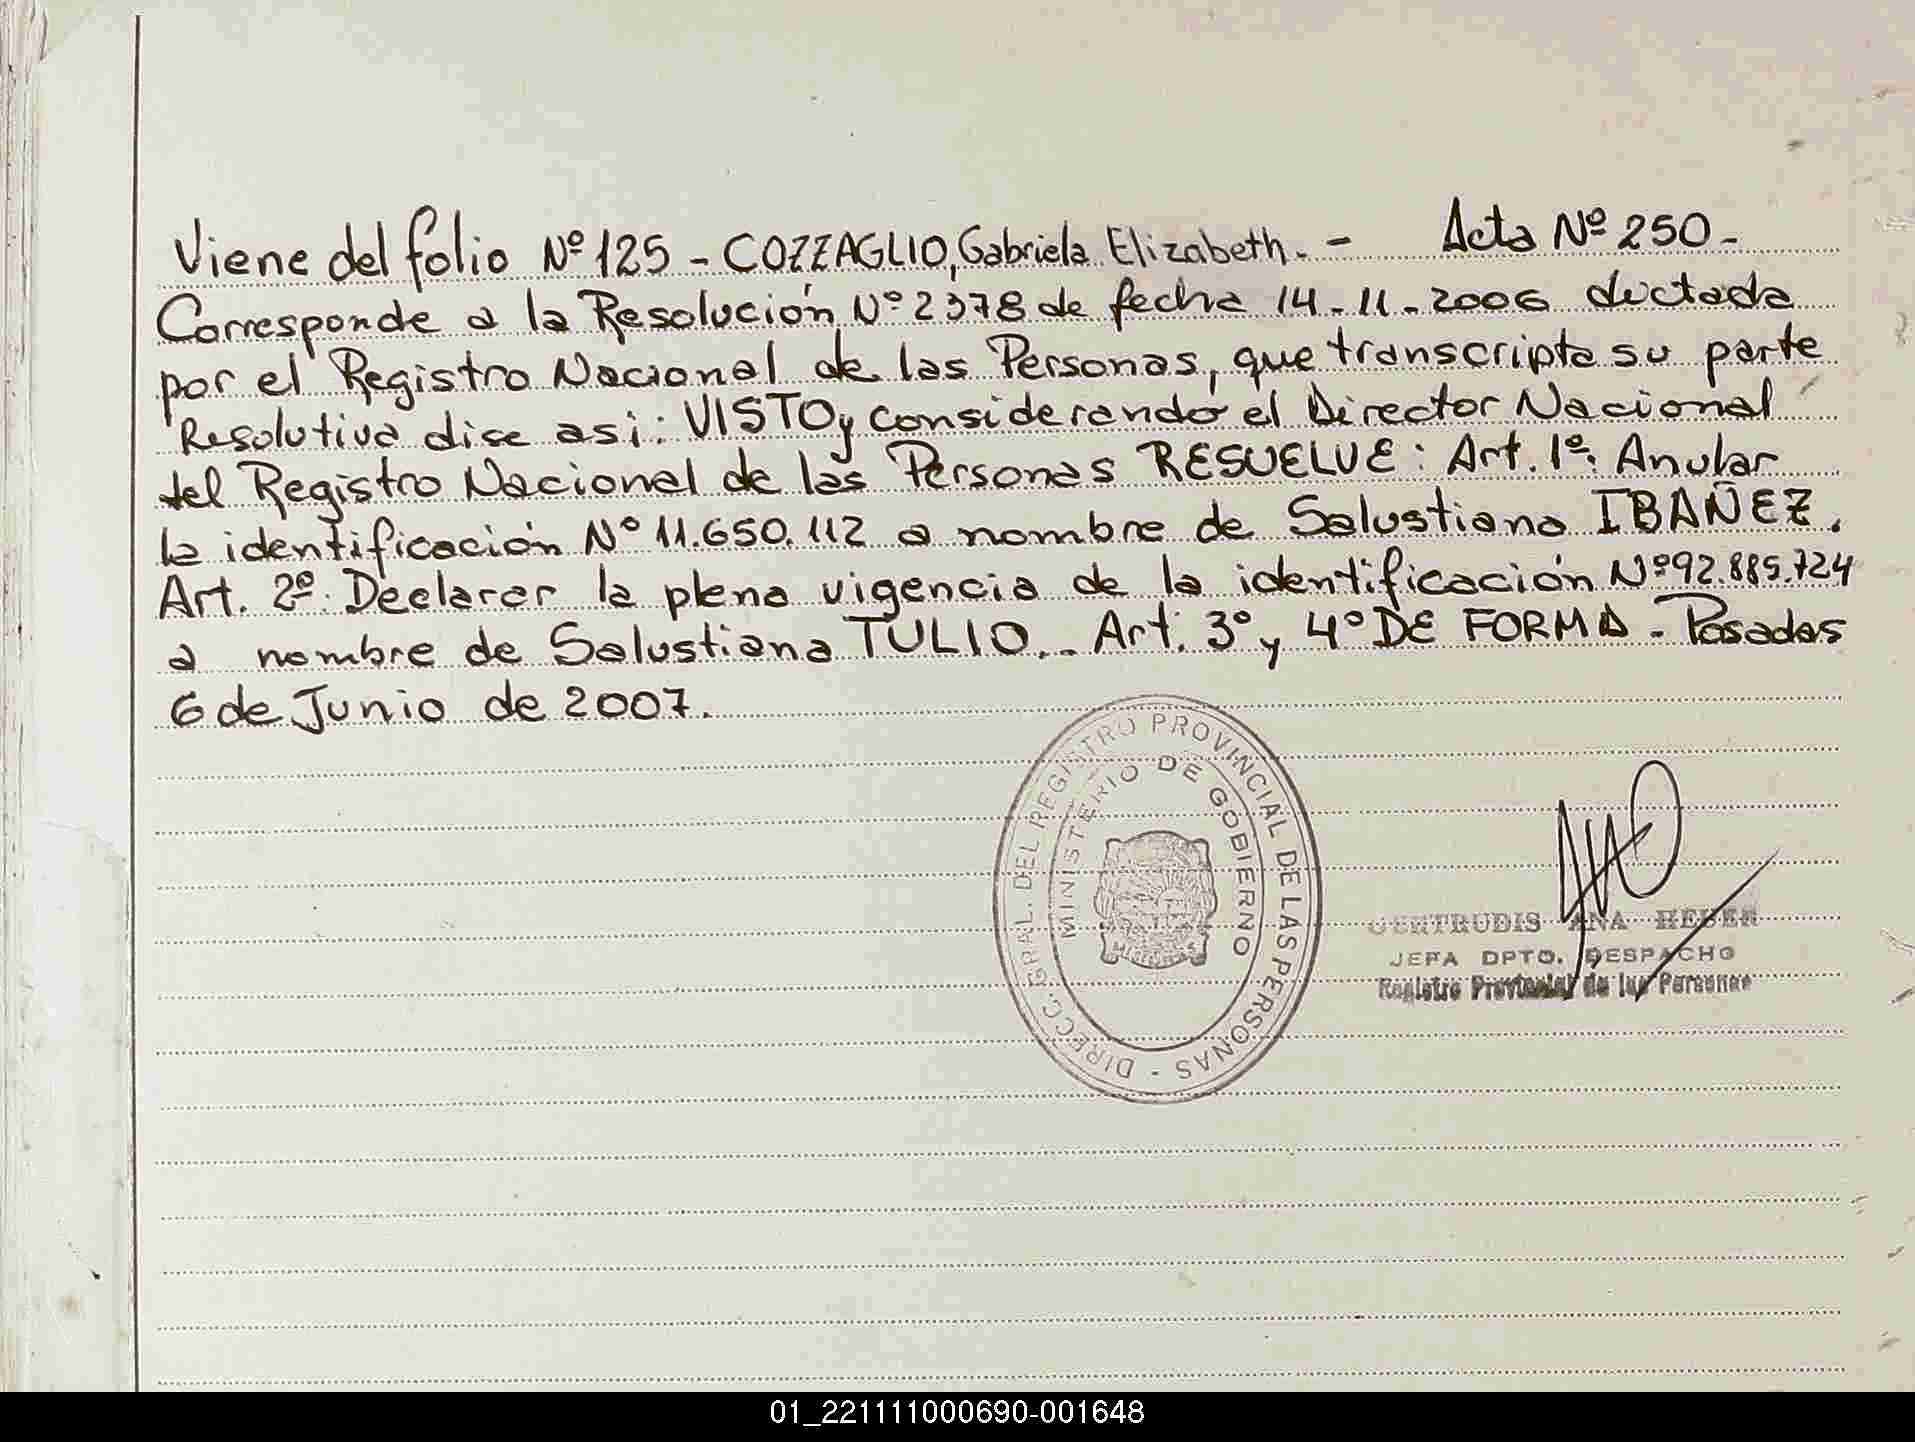 Viene del folio Nº 125 - COZZAGLIO, Gabriela Elizabeth. - Acta Nº 250 -
Corresponde a la Resolución Nº 2378 de fecha 14-11-2006 dictada
por el Registro Nacional de las Personas, que transcripta su parte
Resolutiva dice asi: VISTO y considerando el Director Nacional
del Registro Nacional de las Personas RESUELVE: Art. 1º: Anular
la identificación Nº 11.650.112 a nombre de Salustiana IBAÑEZ.
Art. 2º: Declarar la plena vigencia de la identificación Nº 92.885.724
a nombre de Salustiana TULIO.- Art. 3º y 4º DE FORMA - Posadas
6 de Junio de 2007.
DIRECC. GRAL. DEL REGISTRO PROVINCIAL DE LAS PERSONAS -
MINISTERIO DE GOBIERNO
MISIONES
GERTRUDIS ANA HEBER
JEFA DPTO. DESPACHO
Registro Provincial de las Personas
01_221111000690-001648